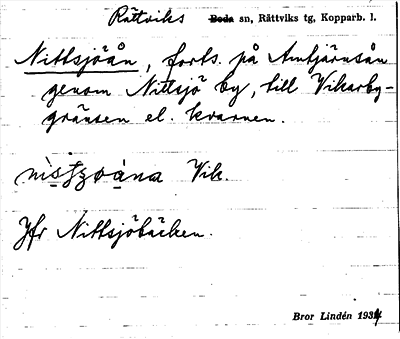 Rättviks Boda sn, Rättviks tg, Kopparb. l.
Nittsjöån, forts. på Amtjärnsån
genom Nittsjö by, till Vikarby-
gränsen el. kvarnen.
Vik.
Jfr Nittsjöbäcken.
Bror Lindén 1934